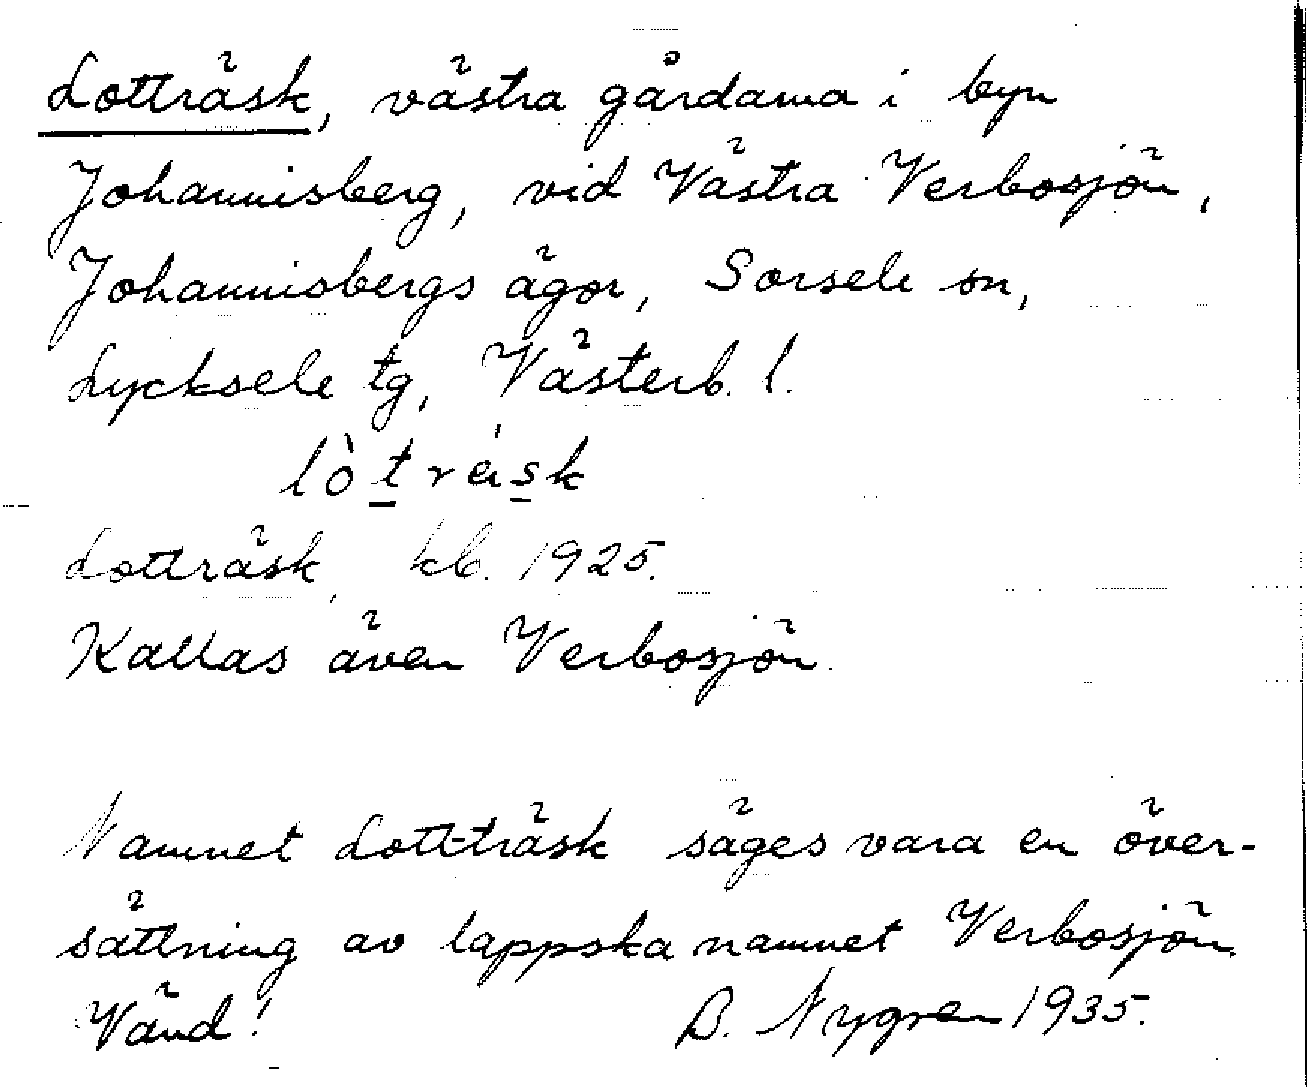 Lotträsk, västra gårdarna i byn
Johannisberg, vid Västra Verbosjön,
Johannisbergs ägor, Sorsele sn,
Lycksele tg, Västerb. l.
lòtrásk
Lotträsk, kb. 1925.
Kallas även Verbosjön.
Namnet Lott-träsk säges vara en över-
sättning av lappska namnet Verbosjön.
Vänd! B. Nygren 1935.